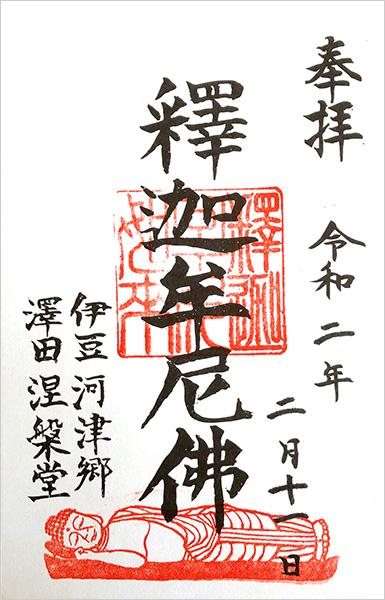 奉拝 令和二年 二月十一日
釋迦牟尼佛
伊豆 河津郷
澤田 涅槃堂